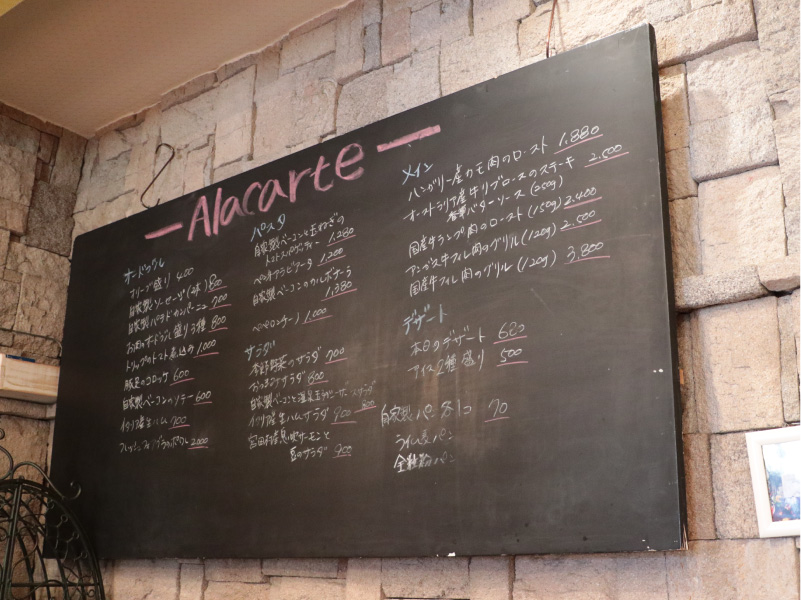 Alacarte
オードヴル
オリーブ盛り 400
自家製ソーセージ(2本) 800
自家製パテドカンパーニュ 700
お肉のオードブル盛り3種 800
トリップのトマト煮込み 1,000
豚足のコロッケ 600
自家製ベーコンのソテー 600
イタリア産生ハム 700
フレッシュフォアグラのポワレ 2,000
パスタ
自家製ベーコンと玉ねぎの
トマトスパゲッティー 1,280
ペンネアラビアータ 1,200
自家製ベーコンのカルボナーラ
1,380
ペペロンチーノ 1,000
サラダ
野菜のサラダ 700
おつまみサラダ 800
自家製ベーコンと温泉玉子のシーザーサラダ
800
イタリア産生ハムサラダ 900
サーモンと
豆のサラダ 900
メイン
ハンガリー産カモ肉のロースト 1,880
オーストラリア産牛リブロースのステーキ 2,500
バターソース (250g)
国産牛ランプ肉のロースト (150g) 2,400
アンガス牛フィレ肉のグリル (120g) 2,500
国産牛フィレ肉のグリル (120g) 3,800
デザート
本日のデザート 620
アイス2種盛り 500
自家製パン 各1コ 70
パン
パン